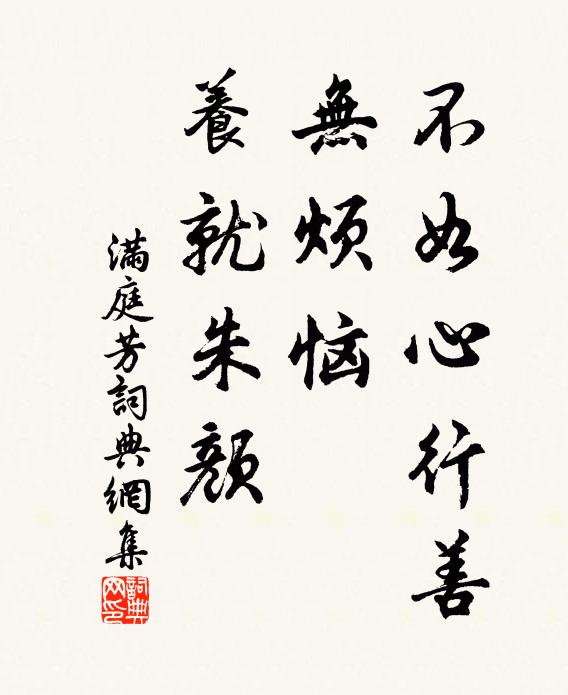 不如心行善
無烦恼
養就朱顏
滿庭芳詞典網集
詞典网印